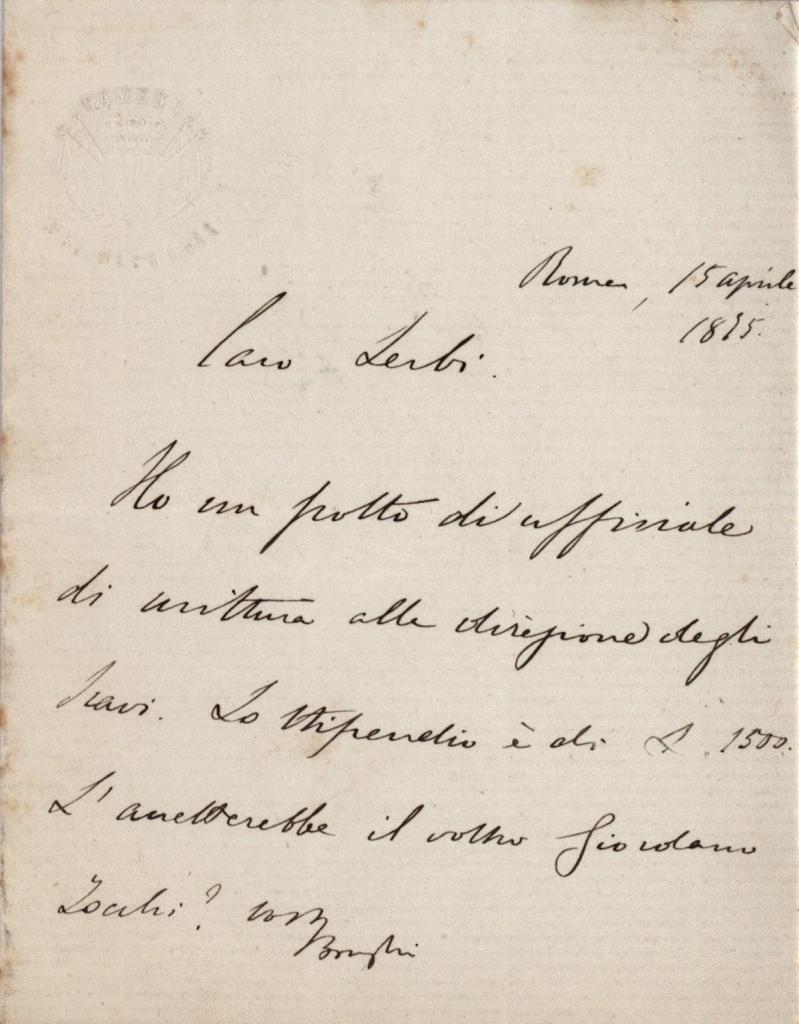 CAMERA DEI
DEPUTATI
Roma, 15 aprile
1875.
Caro Zerbi.
Ho un posto di uffiziale
di scrittura alla direzione degli
Scavi. Lo stipendio è di L. 1500.
L'accetterebbe il vostro Giordano
Zocchi? Vostro
Bonghi